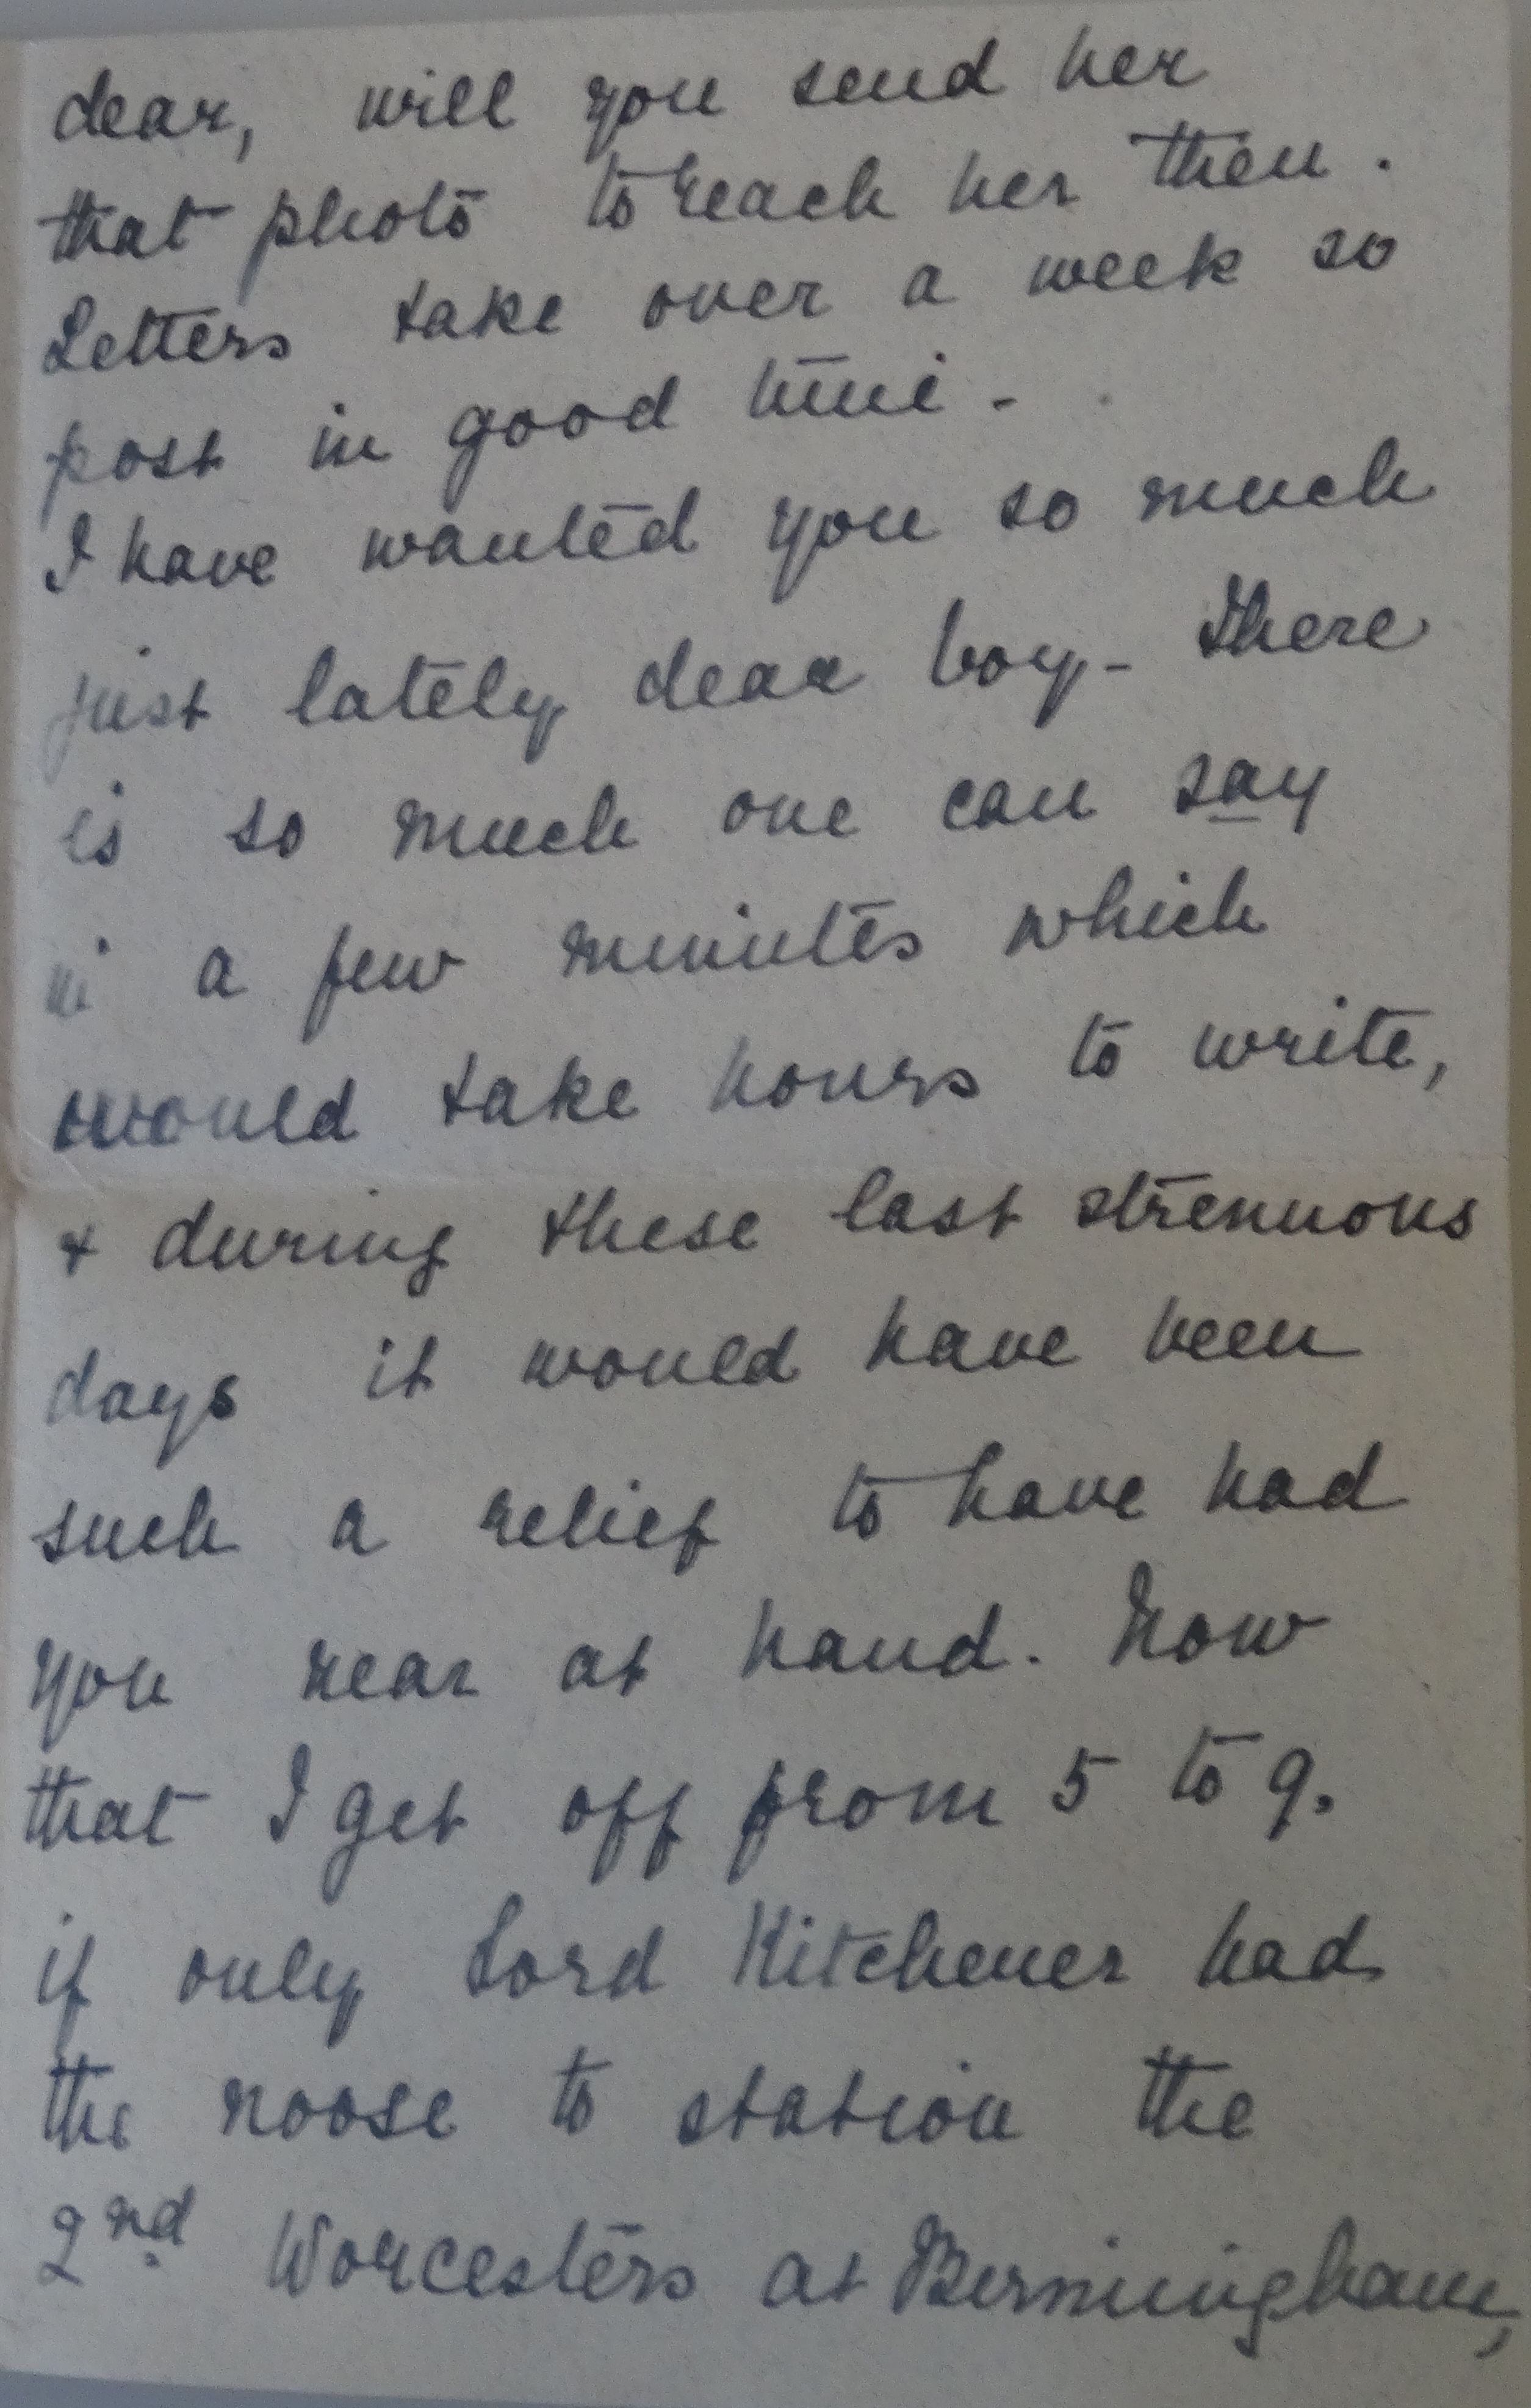 dear, will you send her
that photo to reach her then.
Letters take over a week so
post in good time -
I have wanted you so much
just lately dear boy - there
is so much one can say
in a few minutes which
would take hours to write,
+ during these last strenuous
days it would have been
such a relief to have had
you near at hand. Now
that I get off from 5 to 9.
if only Lord Kitchener had
the noose to station the
2nd Worcesters at Birmingham,